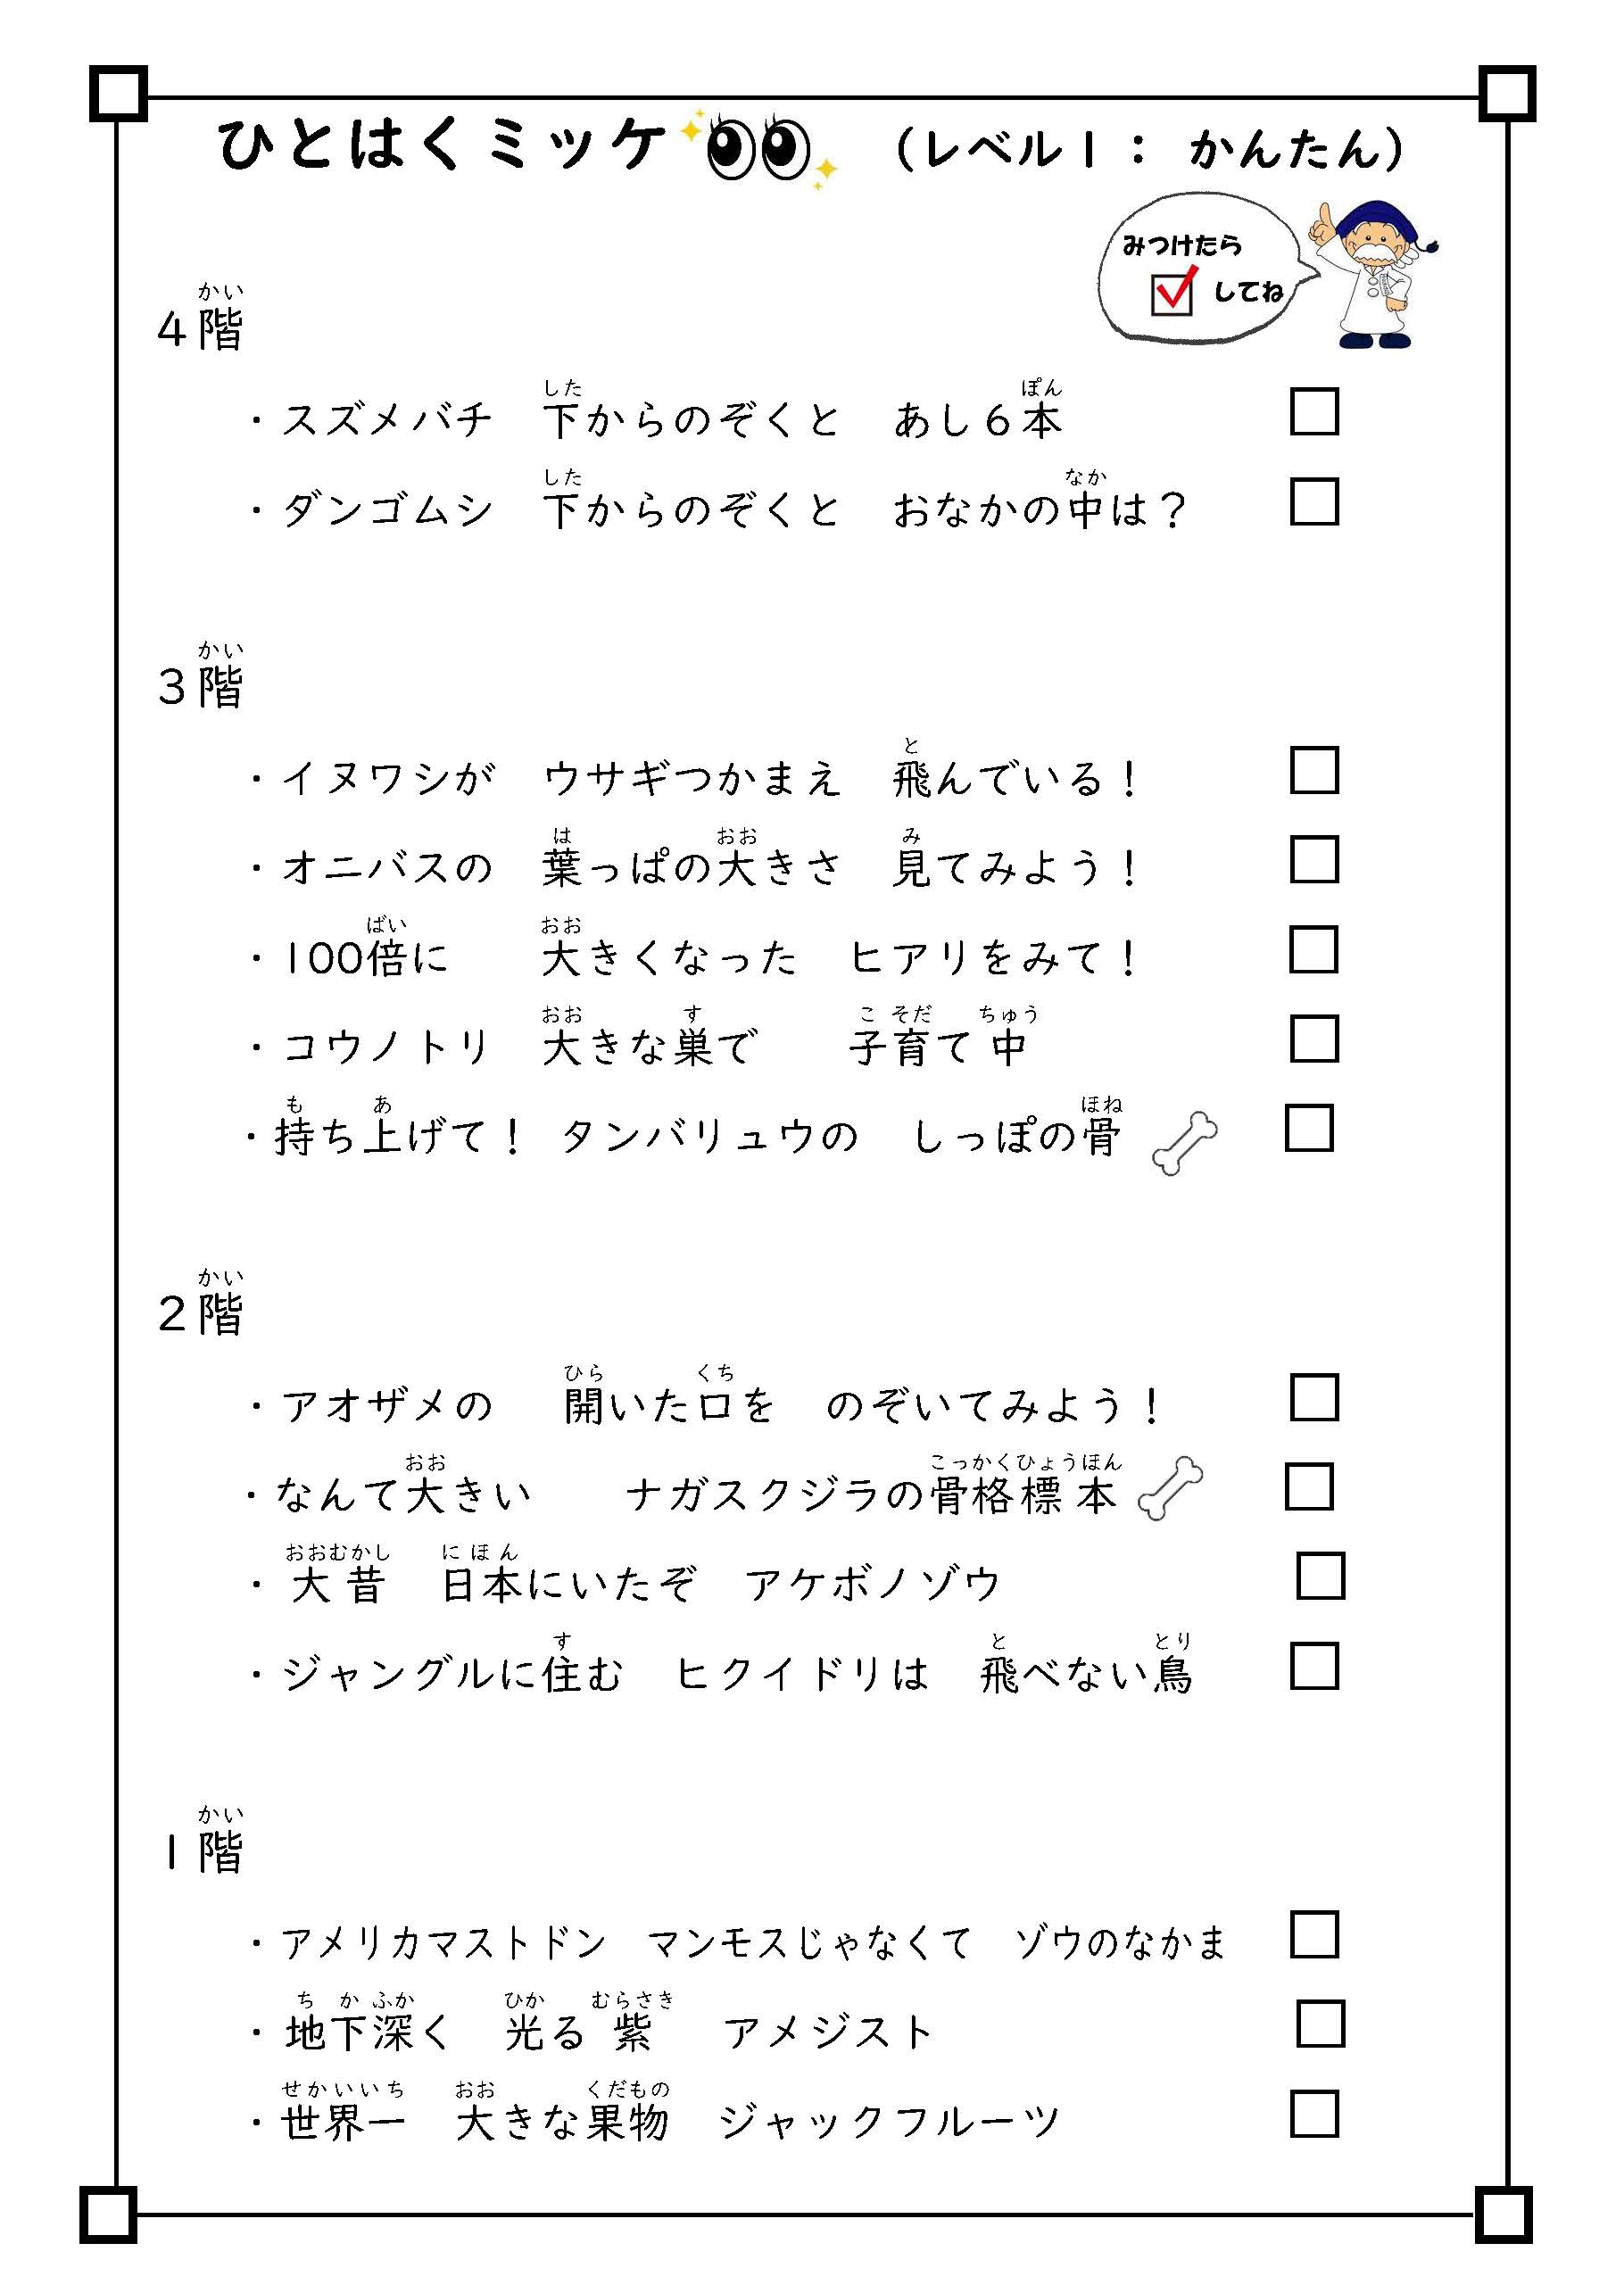 ひとはくミッケ　（レベル１： かんたん）
みつけたら
してね
４階
・スズメバチ　下からのぞくと　あし６本
・ダンゴムシ　下からのぞくと　おなかの中は？
３階
・イヌワシが　ウサギつかまえ　飛んでいる！
・オニバスの　葉っぱの大きさ　見てみよう！
・100倍に　　大きくなった　ヒアリをみて！
・コウノトリ　大きな巣で　　子育て中
・持ち上げて！ タンバリュウの　しっぽの骨
２階
・アオザメの　開いた口を　のぞいてみよう！
・なんて大きい　　ナガスクジラの骨格標本
・大昔　日本にいたぞ　アケボノゾウ
・ジャングルに住む　ヒクイドリは　飛べない鳥
１階
・アメリカマストドン　マンモスじゃなくて　ゾウのなかま
・地下深く　光る紫　アメジスト
・世界一　大きな果物　ジャックフルーツ